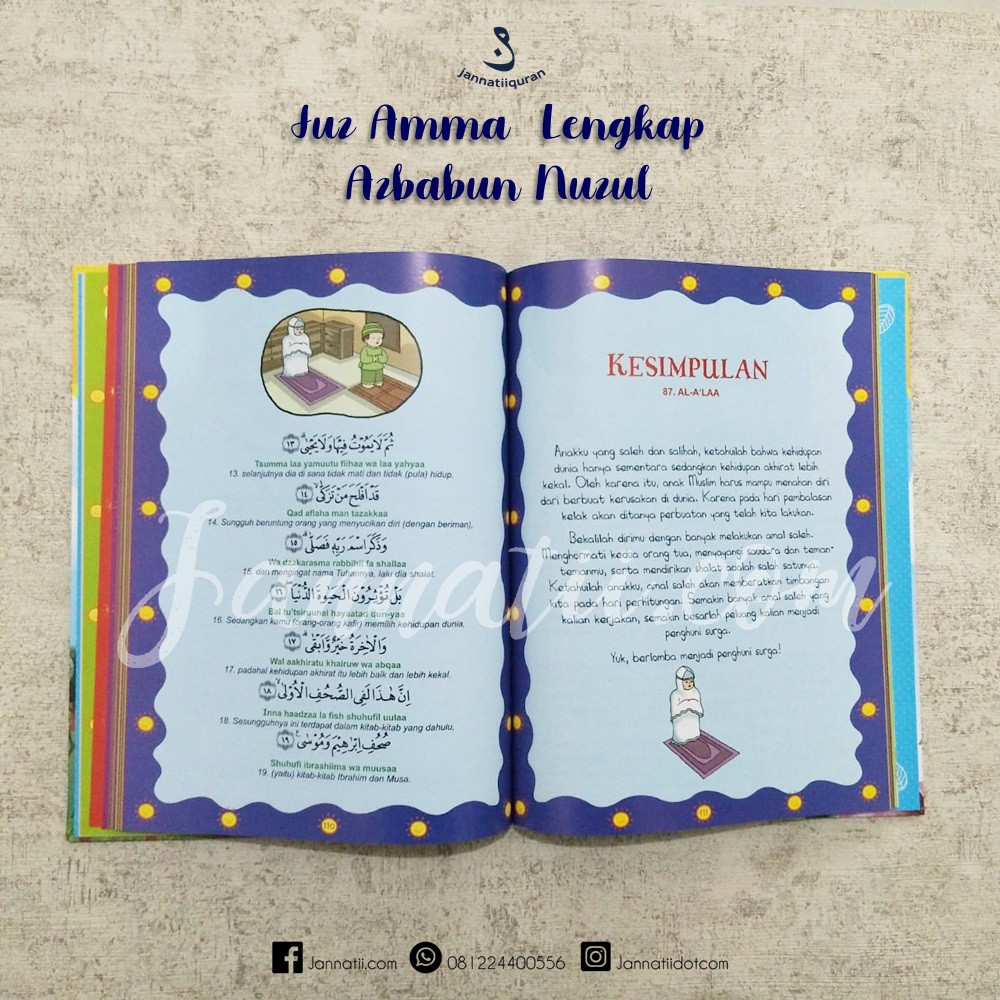 jannatiiquran
Juz Amma Lengkap
Azbabun Nuzul
ثُمَّ لَا يَمُوْتُ فِيْهَا وَلَا يَحْيٰىۗ ١٣
Tsumma laa yamuutu fiihaa wa laa yahyaa
13. selanjutnya dia di sana tidak mati dan tidak (pula) hidup.
قَدْ اَفْلَحَ مَنْ تَزَكّٰىۙ ١٤
Qad aflaha man tazakkaa
14. Sungguh beruntung orang yang menyucikan diri (dengan beriman),
وَذَكَرَ اسْمَ رَبِّهٖ فَصَلّٰىۗ ١٥
Wa dzakarasma rabbihii fa shallaa
15. dan mengingat nama Tuhannya, lalu dia shalat.
بَلْ تُؤْثِرُوْنَ الْحَيٰوةَ الدُّنْيَاۖ ١٦
Bal tu'tsiruunal hayaatad dun-yaa
16. Sedangkan kamu (orang-orang kafir) memilih kehidupan dunia,
وَالْاٰخِرَةُ خَيْرٌ وَّاَبْقٰىۗ ١٧
Wal aakhiratu khairuw wa abqaa
17. padahal kehidupan akhirat itu lebih baik dan lebih kekal.
اِنَّ هٰذَا لَفِى الصُّحُفِ الْاُوْلٰىۙ ١٨
Inna haadzaa la fish shuhufil uulaa
18. Sesungguhnya ini terdapat dalam kitab-kitab yang dahulu,
صُحُفِ اِبْرٰهِيْمَ وَمُوْسٰى ࣖ ١٩
Shuhufi ibraahiima wa muusaa
19. (yaitu) kitab-kitab Ibrahim dan Musa.
110
KESIMPULAN
87. AL-A'LAA
Anakku yang saleh dan salihah, ketahuilah bahwa kehidupan
dunia hanya sementara sedangkan kehidupan akhirat lebih
kekal. Oleh karena itu, anak Muslim harus mampu menahan diri
dari berbuat kerusakan di dunia. Karena pada hari pembalasan
kelak akan ditanya perbuatan yang telah kita lakukan.
Bekalilah dirimu dengan banyak melakukan amal saleh.
Menghormati kedua orang tua, menyayangi saudara dan teman-
temanmu, serta mendirikan shalat adalah salah satunya.
Ketahuilah anakku, amal saleh akan memberatkan timbangan
kita pada hari perhitungan. Semakin banyak amal saleh yang
kalian kerjakan, semakin besarlah peluang kalian menjadi
penghuni surga.
Yuk, berlomba menjadi penghuni surga!
111
Jannatii.com
Jannatii.com
081224400556
Jannatiidotcom